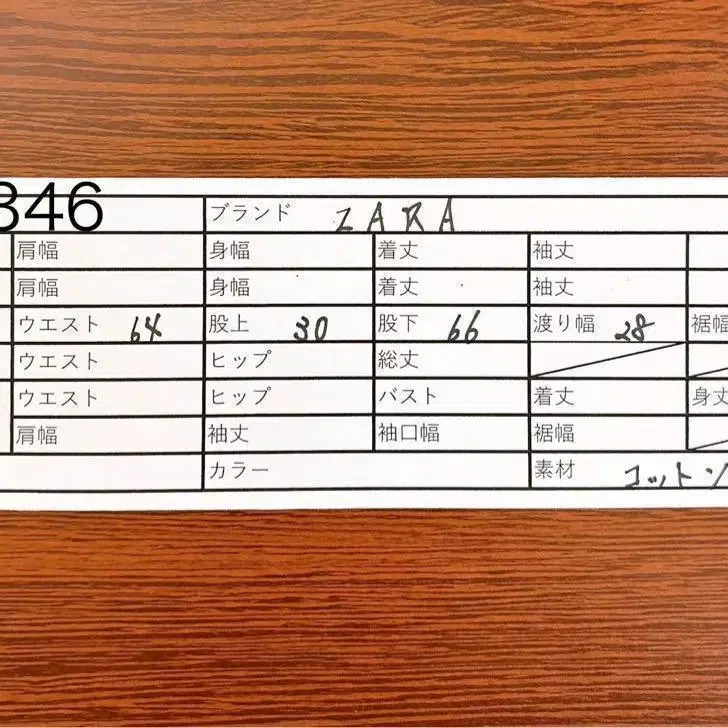 346
ブランド ZARA
肩幅 身幅 着丈 袖丈
肩幅 身幅 着丈 袖丈
ウエスト 64 股上 30 股下 66 渡り幅 28 裾幅
ウエスト ヒップ 総丈
ウエスト ヒップ バスト 着丈 身丈
肩幅 袖丈 袖口幅 裾幅
カラー 素材 コットン